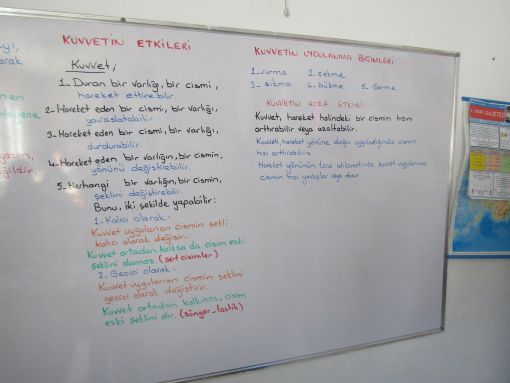 KUVVETİN ETKİLERİ
Kuvvet;
1- Duran bir varlığı, bir cismi,
hareket ettirebilir.
2- Hareket eden bir cismi, bir varlığı,
yavaşlatabilir.
3- Hareket eden bir cismi, bir varlığı,
durdurabilir.
4- Hareket eden bir varlığın, bir cismin,
yönünü değiştirebilir.
5- Herhangi bir varlığın, bir cismin,
şeklini değiştirebilir.
Bunu, iki şekilde yapabilir:
1- Kalıcı olarak:
Kuvvet uygulanan cismin şekli
kalıcı olarak değişir.
Kuvvet ortadan kalksa da cisim eski
şeklini alamaz. (sert cisimler)
2- Geçici olarak:
Kuvvet uygulanan cismin şeklini
geçici olarak değiştirir.
Kuvvet ortadan kalkınca, cisim
eski şeklini alır. (sünger-lastik)
KUVVETİN UYGULANMA BİÇİMLERİ
1- vurma 2- çekme
3- sıkma 4- bükme 5- Germe
KUVVETİN HIZA ETKİSİ
Kuvvet, hareket halindeki bir cismin hızını
arttırabilir veya azaltabilir.
Kuvveti, hareket yönüne doğru uyguladığında cismin
hızı arttırabiliriz.
Hareket yönünün tersi istikametinde kuvvet uygulanırsa
cismin hızı yavaşlar veya durur.